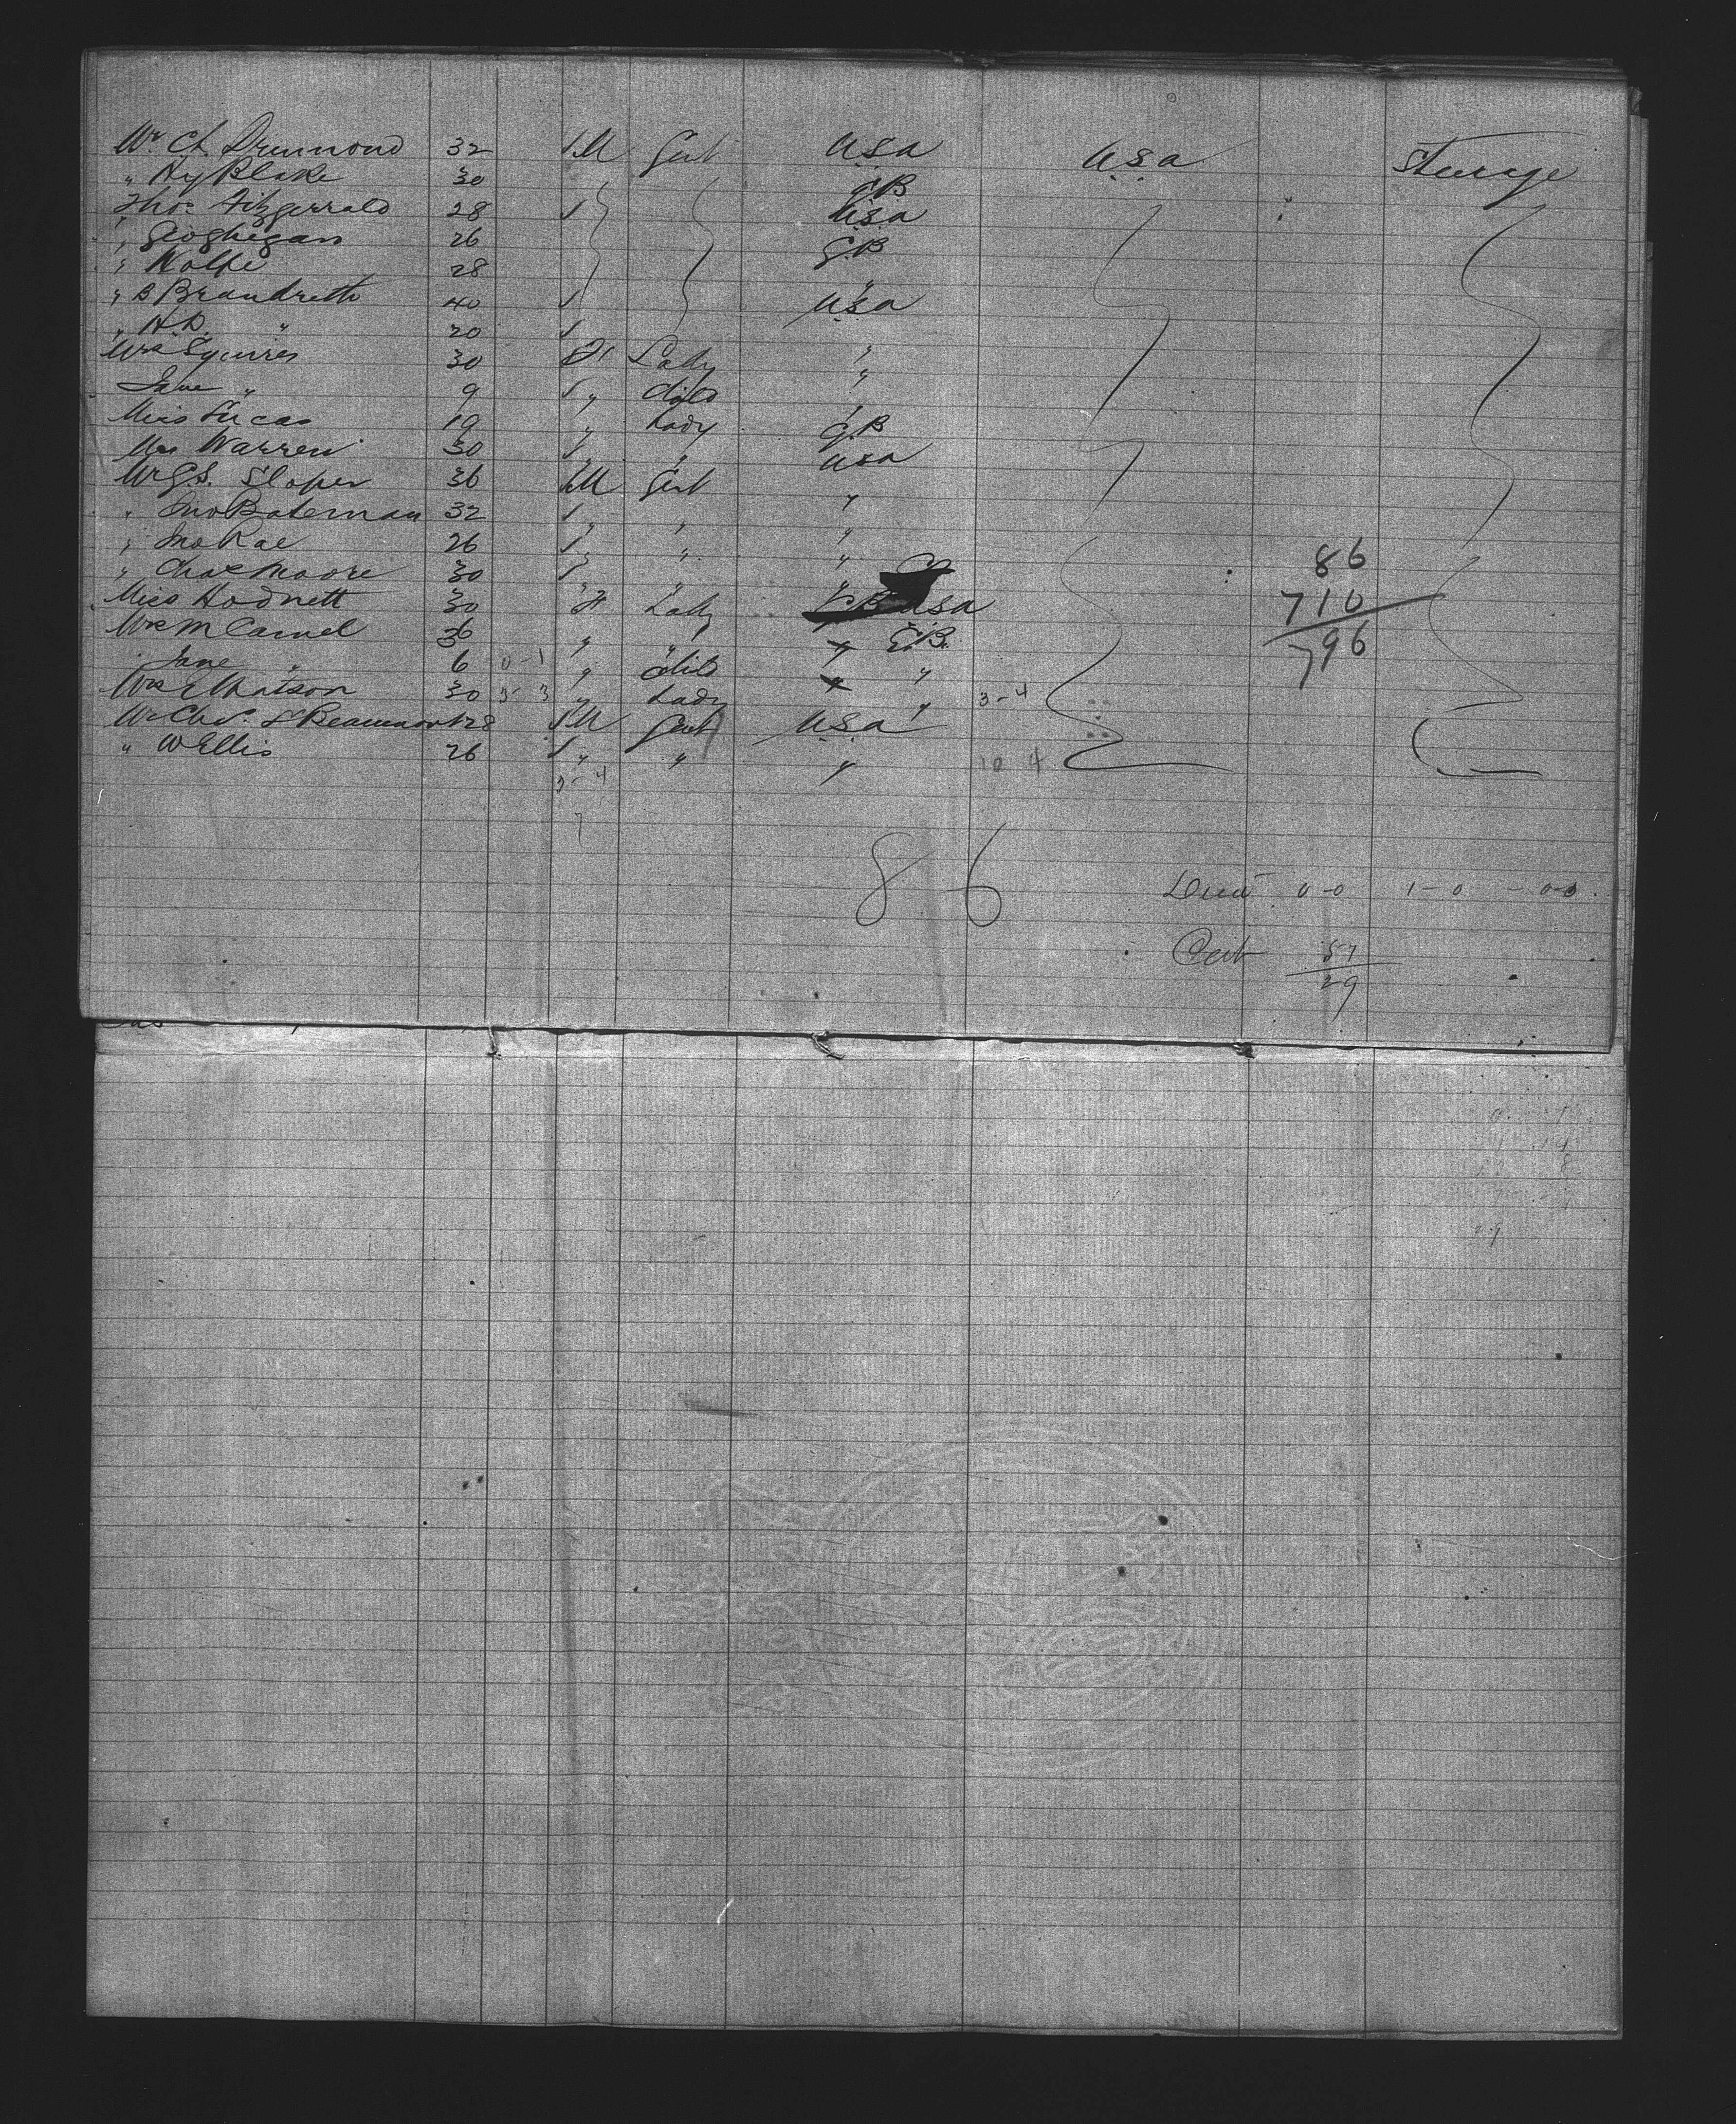 Mr. Ch. Drummond 32 M Gent U.S.a U.S.a Steerage
" Hy Blake 30 G.B
Thos. Fitzgerrald 28 U.S.a
" Geoghegan 26 G.B
" Wolfe 28 "
" B Brandreth 40 U.S.a
" H.D. " 20
Mrs Squires 30 F Lady "
Jane " 9 " Child "
Miss Lucas 19 " Lady G.B
Mrs Warren 30 " " U.S.a
Mr G.S. Sloper 36 M Gent "
" Jno Bateman 32 " " "
" Jno Rae 26 " " " 86
" Chas Moore 30 " " "
Miss Hodnett 30 F Lady U.S.a 710
Mrs McCarnel 36 " " G.B. 796
Jane " 6 0-1 " Child "
Mrs Matson 30 " Lady " 3-4
Mr Chs. L Beaumont 28 M Gent U.S.a
" W Ellis 26 " " " 10 4
3-4
7
86
0-0 1-0 0-0
Cert 57
29